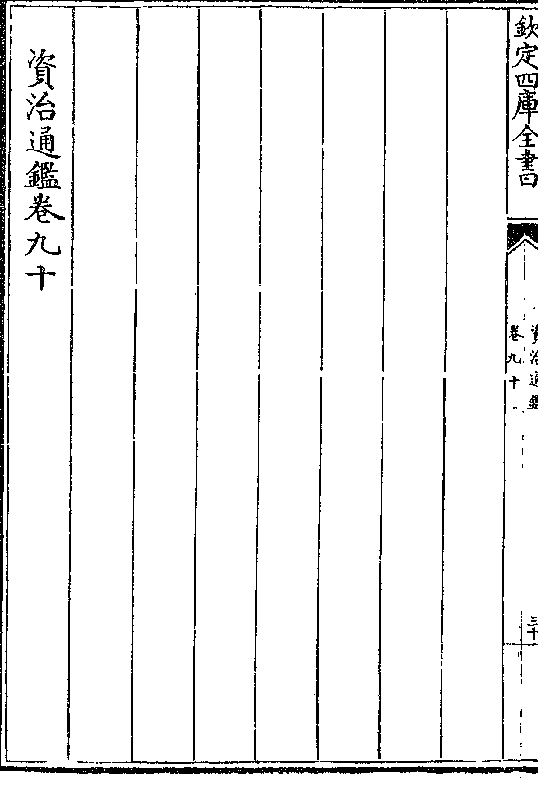 欽定四庫全書
資治通鑑
卷九十
三十
資治通鑑卷九十